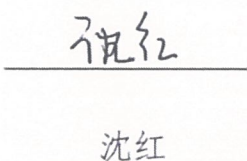 沈红
沈红